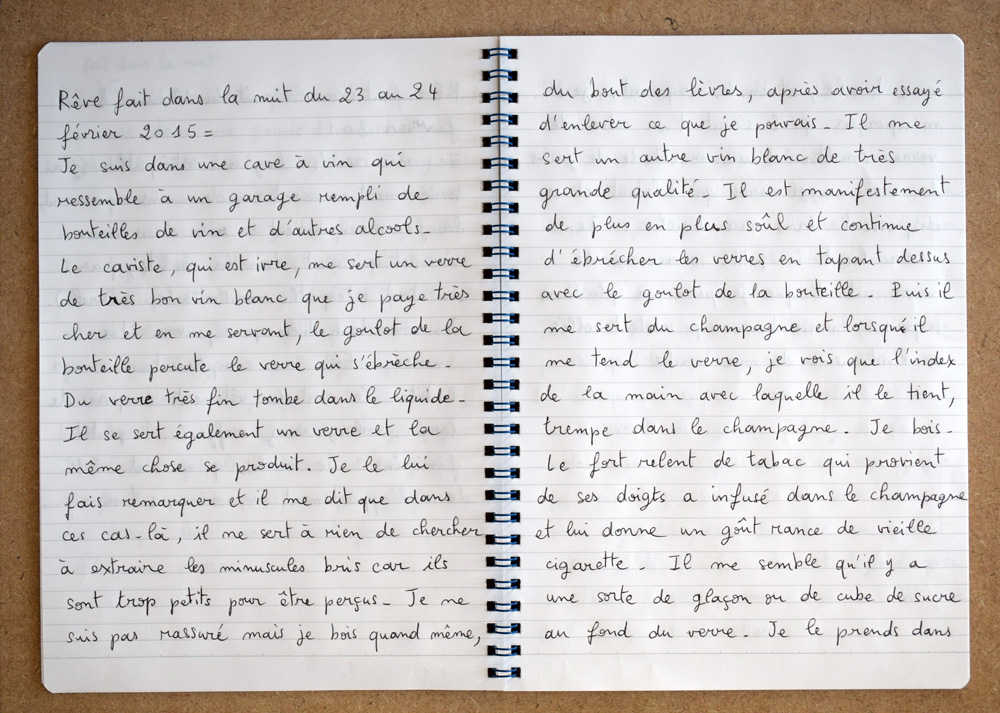 Rêve fait dans la nuit du 23 au 24
février 2015 =
Je suis dans une cave à vin qui
ressemble à un garage rempli de
bouteilles de vin et d'autres alcools-
Le caviste, qui est ivre, me sert un verre
de très bon vin blanc que je paye très
cher et en me servant, le goulot de la
bouteille percute le verre qui s'ébrèche-
Du verre très fin tombe dans le liquide-
Il se sert également un verre et la
même chose se produit. Je le lui
fais remarquer et il me dit que dans
ces cas-là, il ne sert à rien de chercher
à extraire les minuscules bris car ils
sont trop petits pour être perçus- Je ne
suis pas rassuré mais je bois quand même,
du bout des lèvres, après avoir essayé
d'enlever ce que je pouvais- Il me
sert un autre vin blanc de très
grande qualité- Il est manifestement
de plus en plus soûl et continue
d'ébrécher les verres en tapant dessus
avec le goulot de la bouteille. Puis il
me sert du champagne et lorsqu'il
me tend le verre, je vois que l'index
de la main avec laquelle il le tient,
trempe dans le champagne- Je bois-
Le fort relent de tabac qui provient
de ses doigts a infusé dans le champagne
et lui donne un goût rance de vieille
cigarette- Il me semble qu'il y a
une sorte de glaçon ou de cube de sucre
au fond du verre. Je le prends dans